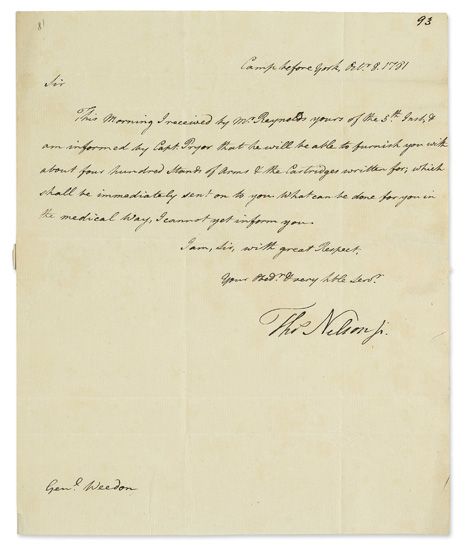 8
93
Camp before York, Octr. 8. 1781
Sir
This Morning I received by Mr. Reynolds yours of the 5th Inst, &
am informed by Capt. Pryor that he will be able to furnish you with
about four hundred Stands of Arms & the Cartridges written for, which
shall be immediately sent on to you. What can be done for you in
the medical Way, I cannot yet inform you.
I am, Sir, with great Respect,
Your Obedt. & very hble Servt.
Thos. Nelson Jr.
Genl. Weedon